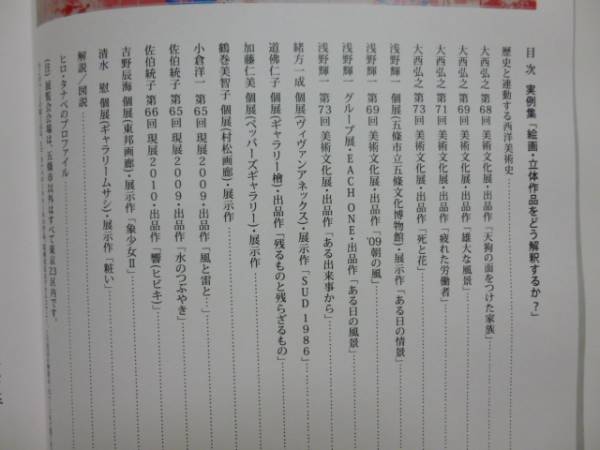 目 次 実例集「絵画・立体作品をどう解釈するか?」
歴史と連動する西洋美術史
大西弘之 第68回 美術文化展・出品作「天狗の面をつけた家族」
大西弘之 第69回 美術文化展・出品作「雄大な風景」
大西弘之 第71回 美術文化展・出品作「疲れた労働者」
大西弘之 第73回 美術文化展・出品作「死と花」
浅野輝一 個展(五條市立五條文化博物館)・展示作「ある日の情景」
浅野輝一 第69回 美術文化展・出品作「'09朝の風」
浅野輝一 グループ展・EACH ONE・出品作「ある日の風景」
浅野輝一 第73回 美術文化展・出品作「ある出来事から」
緒方一成 個展(ヴィヴァンアネックス)・展示作「SUD 1986」
道佛仁子 個展(ギャラリー檜)・出品作「残るものと残らざるもの」
加藤仁美 個展(ペッパーズギャラリー)・展示作
鶴巻美智子 個展(村松画廊)・展示作
小倉洋一 第65回 現展2009・出品作「風と雷と…」
佐伯統子 第65回 現展2009・出品作「水のつぶやき」
佐伯統子 第66回 現展2010・出品作「響(ヒビキ)」
吉野辰海 個展(東邦画廊)・展示作「象少女Ⅱ」
清水 慰 個展(ギャラリームサシ)・展示作「粧い」
解説/図説
ヒロ・タナベのプロファイル
(注) 展覧会会場は、五條市以外はすべて東京23区内です。